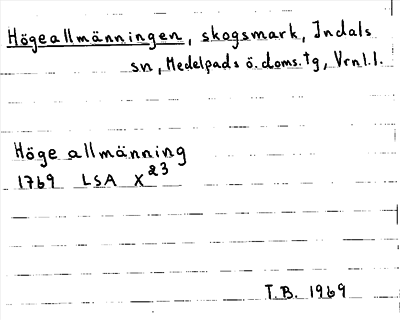 Högeallmänningen, skogsmark, Indals
sn, Medelpads ö. doms. tg, Vrnl.l.
Höge allmänning
1769 LSA X23
T.B. 1969